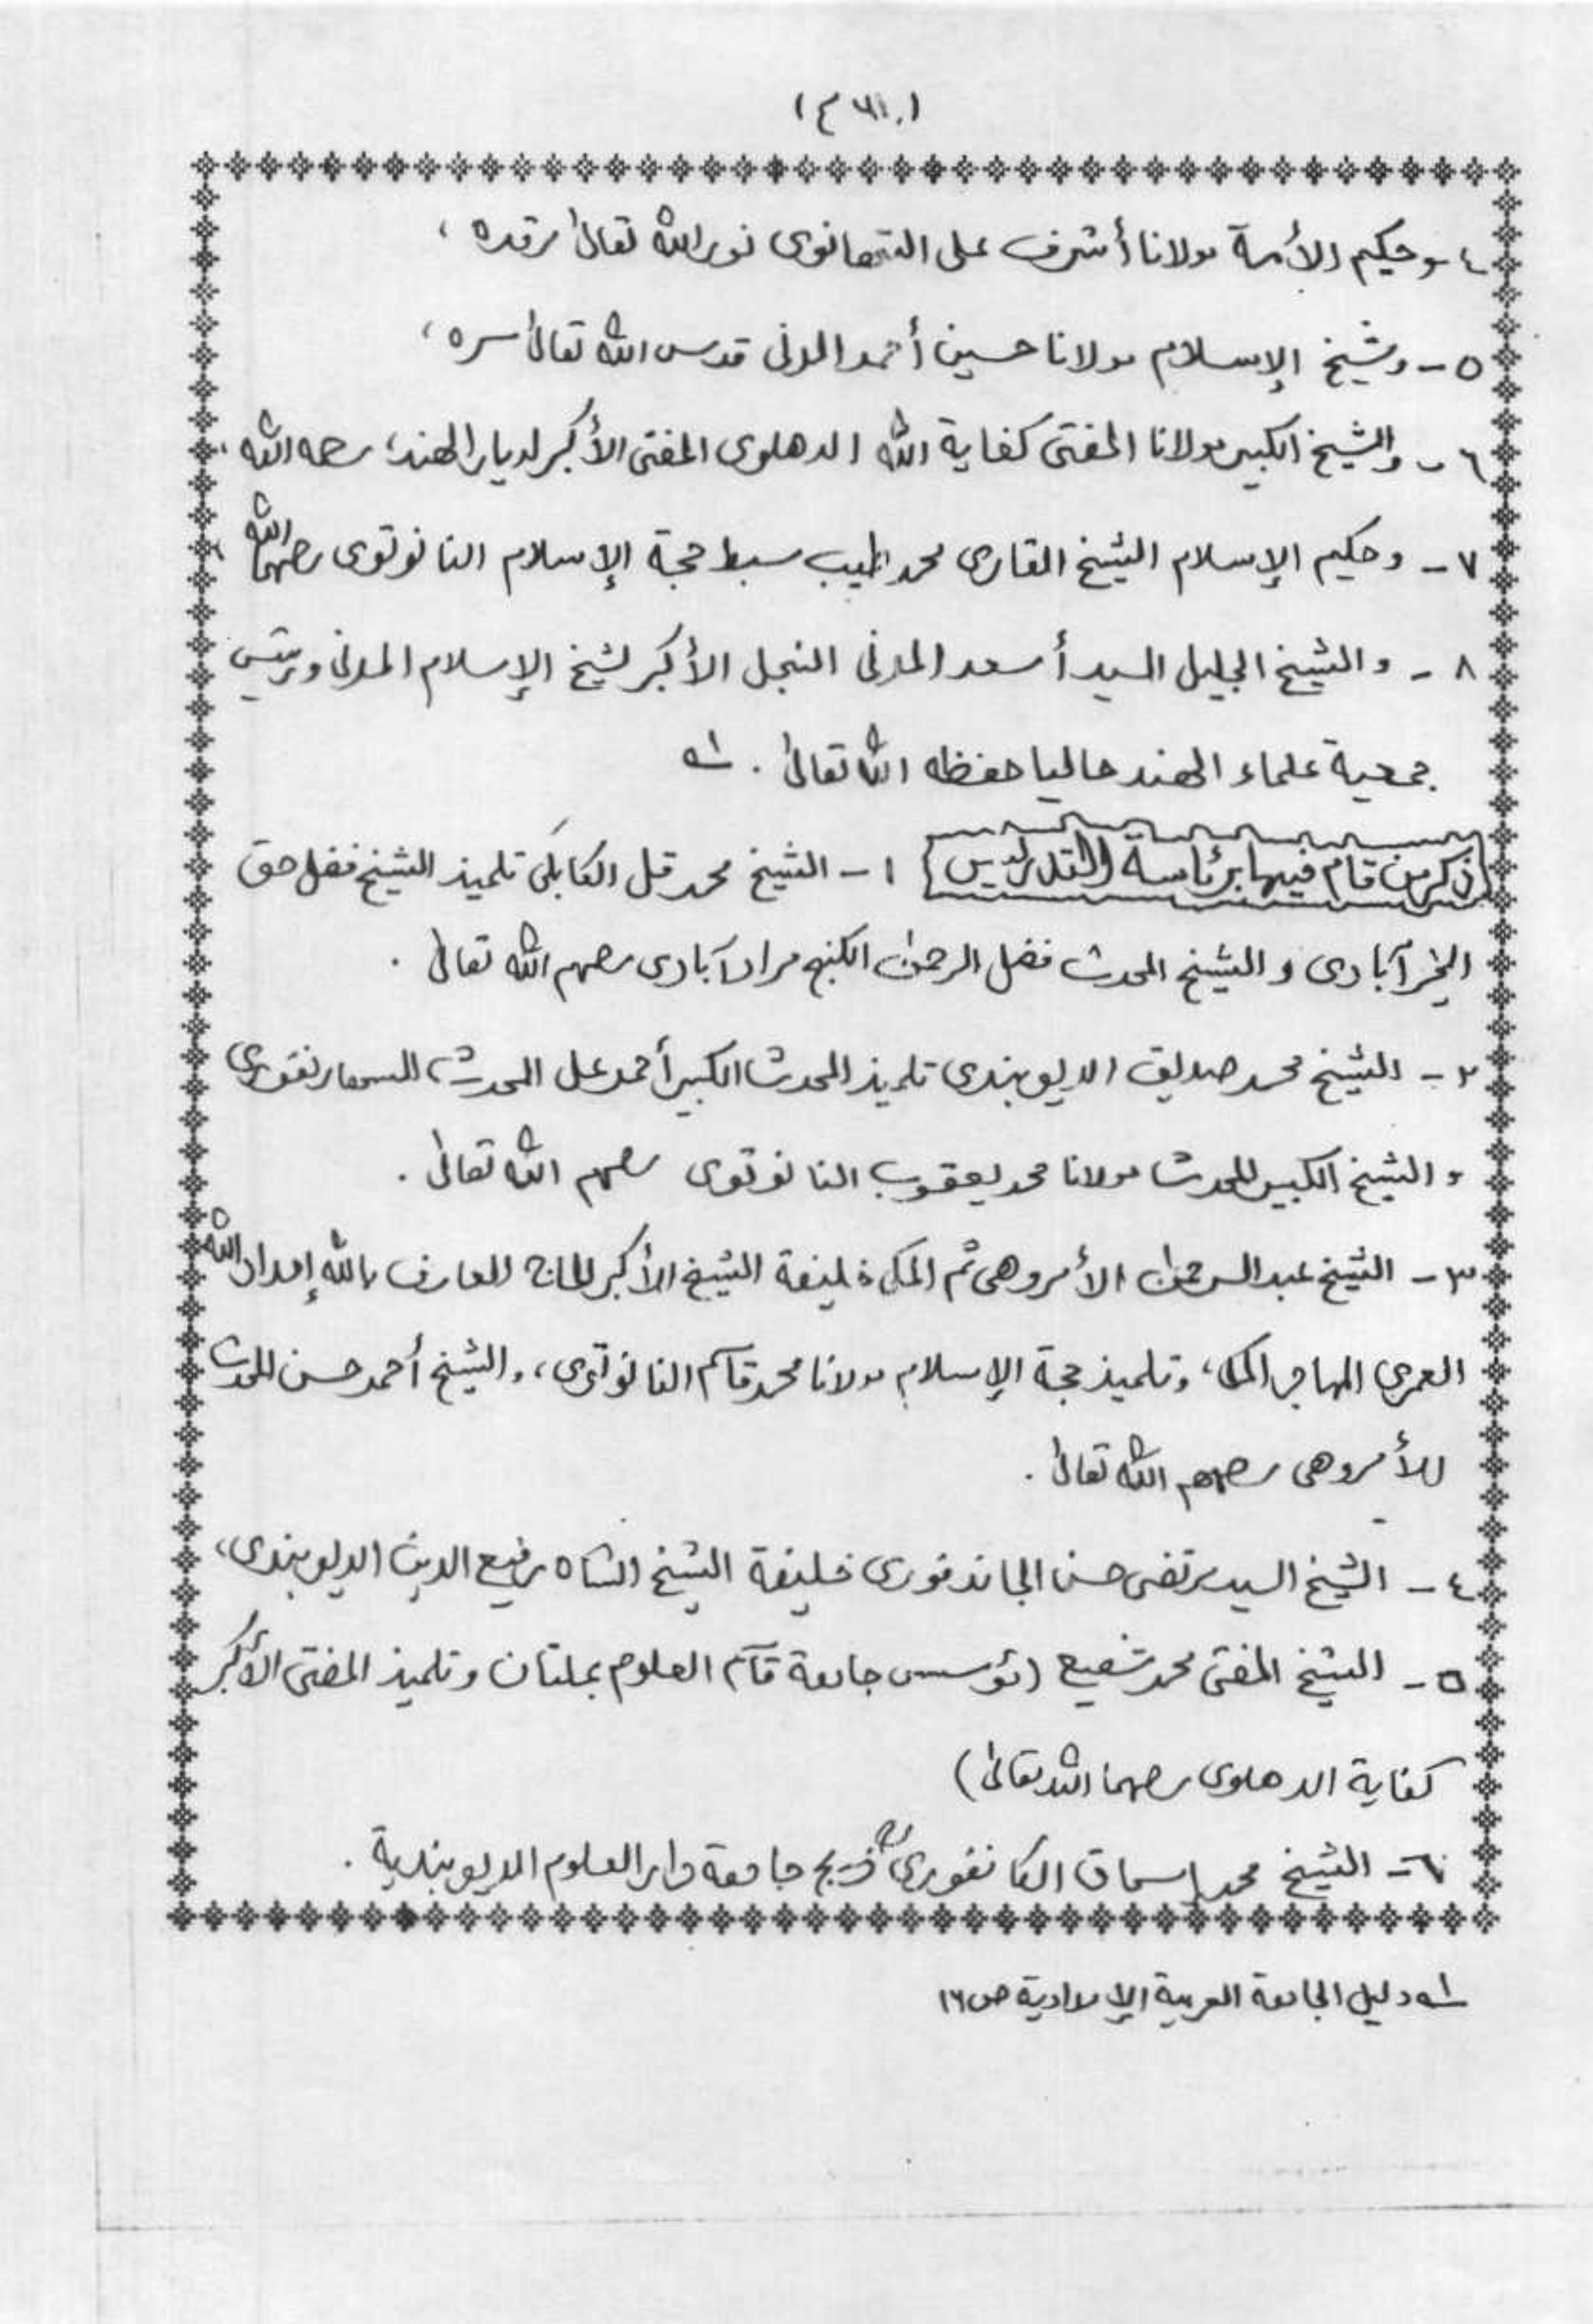 ٤ - وحكيم الأمة مولانا أشرف على التهانوى نور الله تعالىٰ مرقده ،
٥ - وشيخ الإسلام مولانا حسين أحمد المدنى قدس الله تعالىٰ سره ،
٦ - والشيخ الكبير مولانا المفتى كفاية الله الدهلوى المفتى الأكبر لديار الهند، رحمه الله ،
٧ - وحكيم الإسلام الشيخ القارى محمد طيب سبط حجة الإسلام النانوتوى رحمهما الله ،
٨ - والشيخ الجليل السيد أسعد المدنى النجل الأكبر لشيخ الإسلام المدنى ورئيس
جمعية علماء الهند حاليا حفظه الله تعالىٰ . ؁١
ذكر من قام فيها برئاسة التدريس ١ - الشيخ محمد قل الكابلى تلميذ الشيخ فضل حق
الخيرآبادى والشيخ المحدث فضل الرحمٰن الكنج مرادآبادى رحمهم الله تعالىٰ .
٢ - الشيخ محمد صديق الديوبندى تلميذ المحدث الكبير أحمد على المحدث السهارنفورى
والشيخ الكبير المحدث مولانا محمد يعقوب النانوتوى رحمهم الله تعالىٰ .
٣ - الشيخ عبد الرحمٰن الأمروهى ثم المكى خليفة الشيخ الأكبر الحاج العارف بالله إمداد الله
العمرى المهاجر المكى، وتلميذ حجة الإسلام مولانا محمد قاسم النانوتوى، والشيخ أحمد حسن المحدث
الأمروهى رحمهم الله تعالىٰ .
٤ - الشيخ السيد مرتضى حسن الجاندفورى خليفة الشيخ الشاه رفيع الدين الديوبندى،
٥ - الشيخ المفتى محمد شفيع (مؤسس جامعة قاسم العلوم بملتان وتلميذ المفتى الأكبر
كفاية الدهلوى رحمهما الله تعالىٰ)
٦ - الشيخ محمد إسحاق الكانفورى خريج جامعة دار العلوم الديوبندية .
؁١ دليل الجامعة العربية الإمدادية ص ١٦